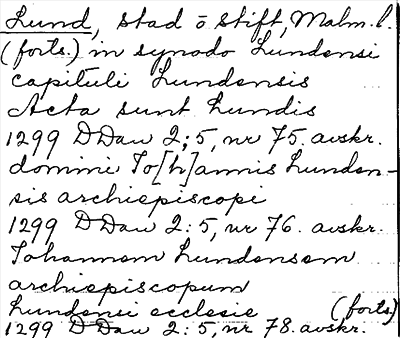 Lund, stad o stift, Malm. l.
(forts.) in synodo Lundensi
capituli Lundensis
Acta sunt Lundis
1299 DDan 2:5, nr 75. avskr.
domini Jo[h]annis Lunden-
sis archiepiscopi
1299 DDan 2:5, nr 76. avskr.
Johannem Lundensem
archiepiscopum
Lundensi ecclesie (forts)
1299 DDan 2:5, nr 78. avskr.